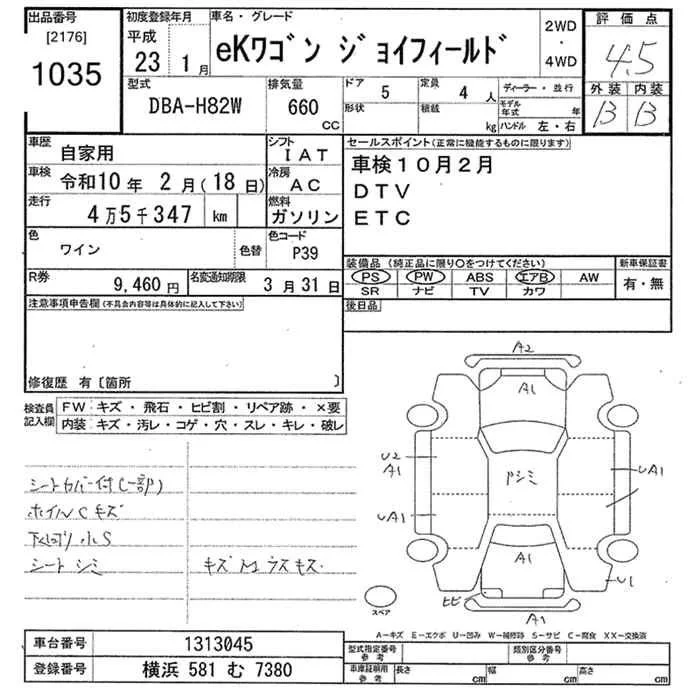 出品番号
[2176]
1035
初度登録年月
平成
23 1月
車名・グレード
eKワゴン ジョイフィールド
2WD
・
4WD
評価点
4.5
外装 内装
B B
型式
DBA-H82W
排気量
660
CC
ドア 5
形状
定員 4 人
積載 kg
ディーラー・並行
モデル年式 年
ハンドル 左・右
車歴
自家用
シフト
IAT
車検
令和10年 2月(18日)
冷房
AC
走行
4万5千347 km
燃料
ガソリン
色
ワイン
色替
色コード
P39
R券
9,460円
名変通知期限
3月31日
セールスポイント(正常に機能するものに限ります)
車検10月2月
DTV
ETC
装備品(純正品に限り○をつけてください)
PS PW ABS エアB AW
SR ナビ TV カワ
新車保証書
有・無
後日品
注意事項申告欄(不具合内容等は具体的に記入して下さい)
修復歴 有〔箇所 〕
検査員
記入欄
FW キズ・飛石・ヒビ割・リペア跡・×要
内装 キズ・汚レ・コゲ・穴・スレ・キレ・破レ
シートカバー付(一部)
ホイルCキズ
下回り小S
シートシミ
キズ M ラスキズ
A2
A1
U2
A1
UA1
ドシミ
UA1
UA1
A1
U1
ヒビ
A1
スペア
A-キズ E-エクボ U-凹み W-補修跡 S-サビ C-腐食 XX-交換済
車台番号 1313045
登録番号 横浜 581 む 7380
型式指定番号
参考
類別区分番号
参考
車庫証明用
参考
長さ cm
幅 cm
高さ cm